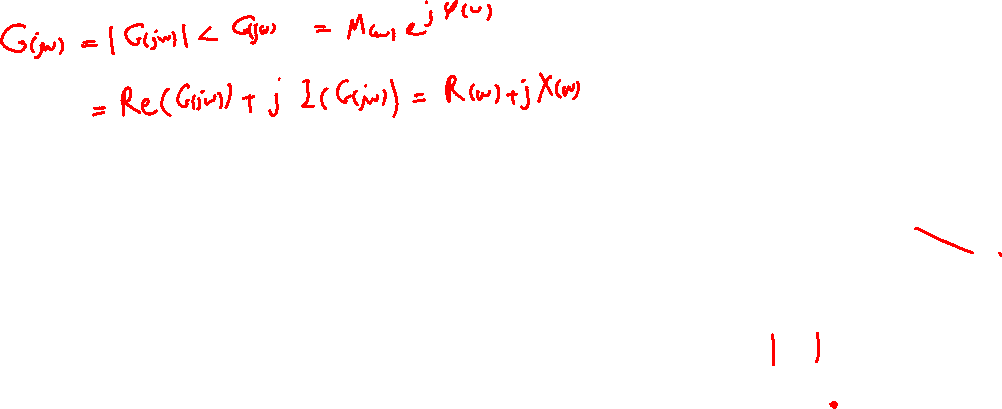 G(jω) = |G(jω)| ∠ G(jω) = M(ω) e^{jφ(ω)}
= Re(G(jω)) + j I(G(jω)) = R(ω) + j X(ω)